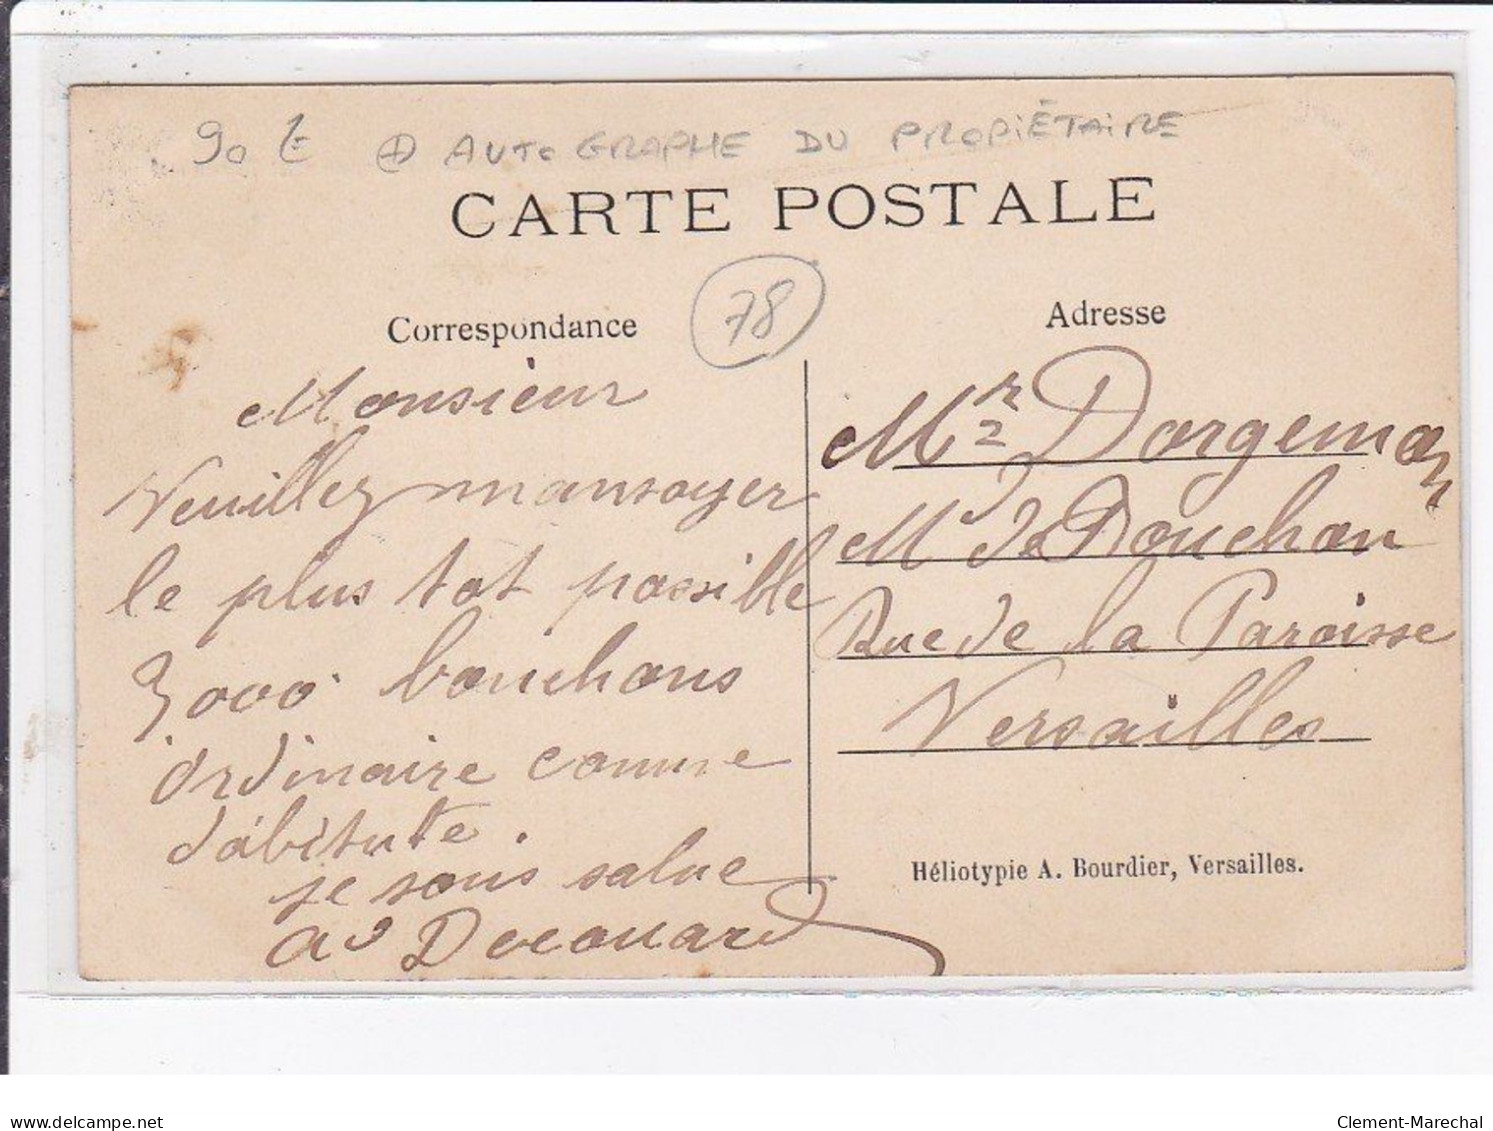 90 € ⊕ AUTOGRAPHE DU PROPIÉTAIRE
CARTE POSTALE
78
Correspondance
Monsieur
Veuillez manvoyer
le plus tot possible
3000 bouchons
ordinaire comme
d'abitutte.
je sous salue
Decouard
Adresse
Mr Dorgeman
Md de Bouchon
Rue de la Paroisse
Versailles
Héliotypie A. Bourdier, Versailles.
delcampe.net
Clement-Marechal